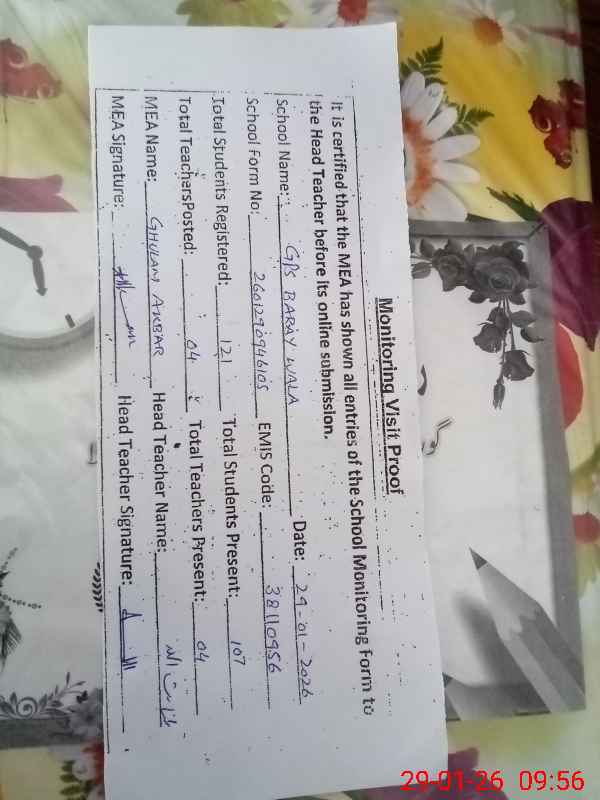 Monitoring Visit Proof
It is certified that the MEA has shown all entries of the School Monitoring Form to
the Head Teacher before its online submission.
School Name: G/S BARAY WALA Date: 29-01-2026
School Form No: 260129094610S EMIS Code: 38110956
Total Students Registered: 121 Total Students Present: 107
Total TeachersPosted: 04 Total Teachers Present: 04
MEA Name: GHULAM AKBAR Head Teacher Name:
MEA Signature: Head Teacher Signature:
29-01-26 09:56